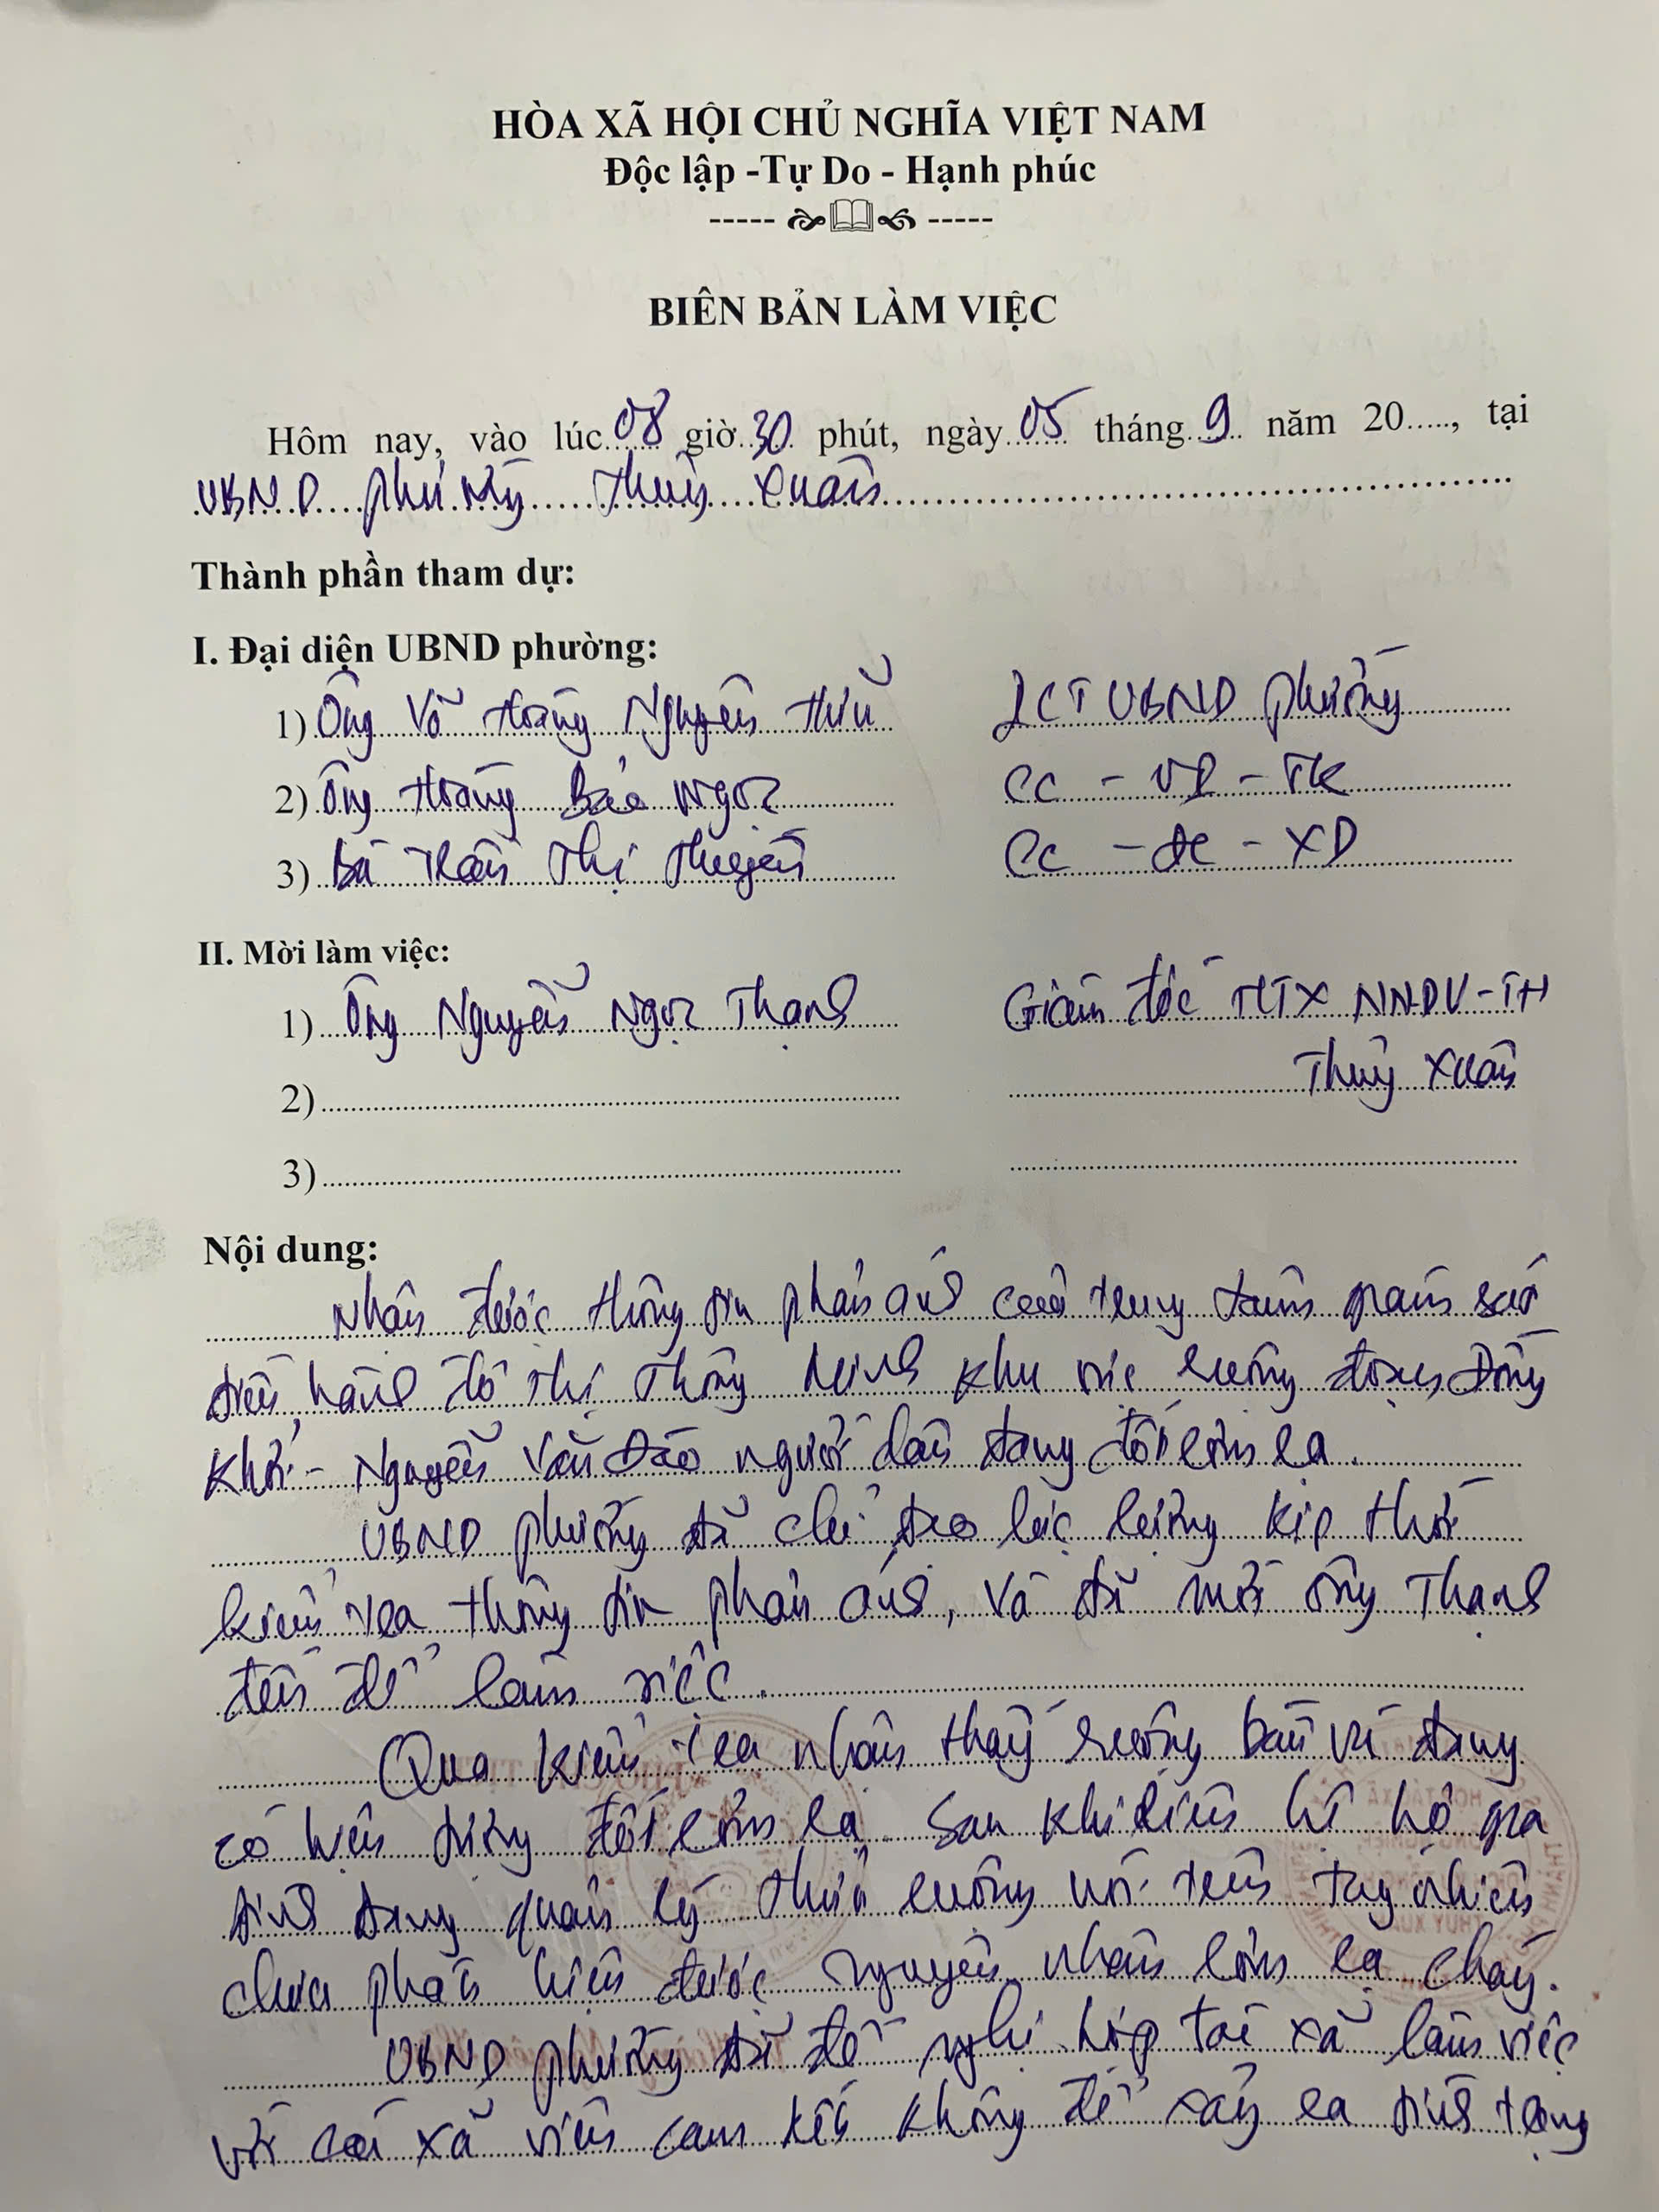 HÒA XÃ HỘI CHỦ NGHĨA VIỆT NAM
Độc lập -Tự Do - Hạnh phúc
BIÊN BẢN LÀM VIỆC
Hôm nay, vào lúc 08 giờ 30 phút, ngày 05 tháng 9 năm 20....., tại
UBND phường Thuỷ Xuân
Thành phần tham dự:
I. Đại diện UBND phường:
1) Ông Võ Hoàng Nguyên PCT UBND phường
2) Ông Hoàng Bảo Ngọc CC - VP - TK
3) Bà Trần Thị CC - ĐC - XD
II. Mời làm việc:
1) Ông Nguyễn Ngọc Thạnh Giám đốc HTX NNDV-TH
2) Thuỷ Xuân
3)
Nội dung:
Nhận được thông tin phản ánh của trung tâm giám sát
điều hành đô thị thông minh khu vực ruộng đoạn Đồng
Khởi - Nguyễn Văn Đào người dân đang đốt rơm rạ.
UBND phường đã chỉ đạo lực lượng kịp thời
kiểm tra thông tin phản ánh, và đã mời ông Thạnh
đến để làm việc.
Qua kiểm tra nhận thấy ruộng đang
có hiện tượng đốt rơm rạ. Sau khi liên hệ hộ gia
đình đang quản lý thửa ruộng nói trên tuy nhiên
chưa phát hiện được nguyên nhân rơm rạ cháy.
UBND phường đã đề nghị hợp tác xã làm việc
với các xã viên cam kết không để xảy ra tình trạng